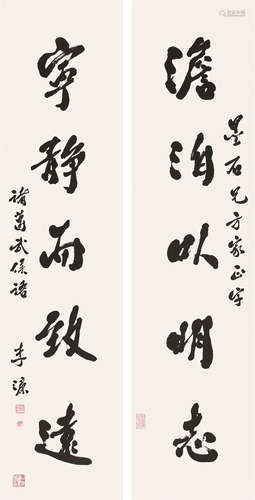 墨石兄方家正字
澹泊以明志
寧靜而致遠
諸葛武侯語
李源